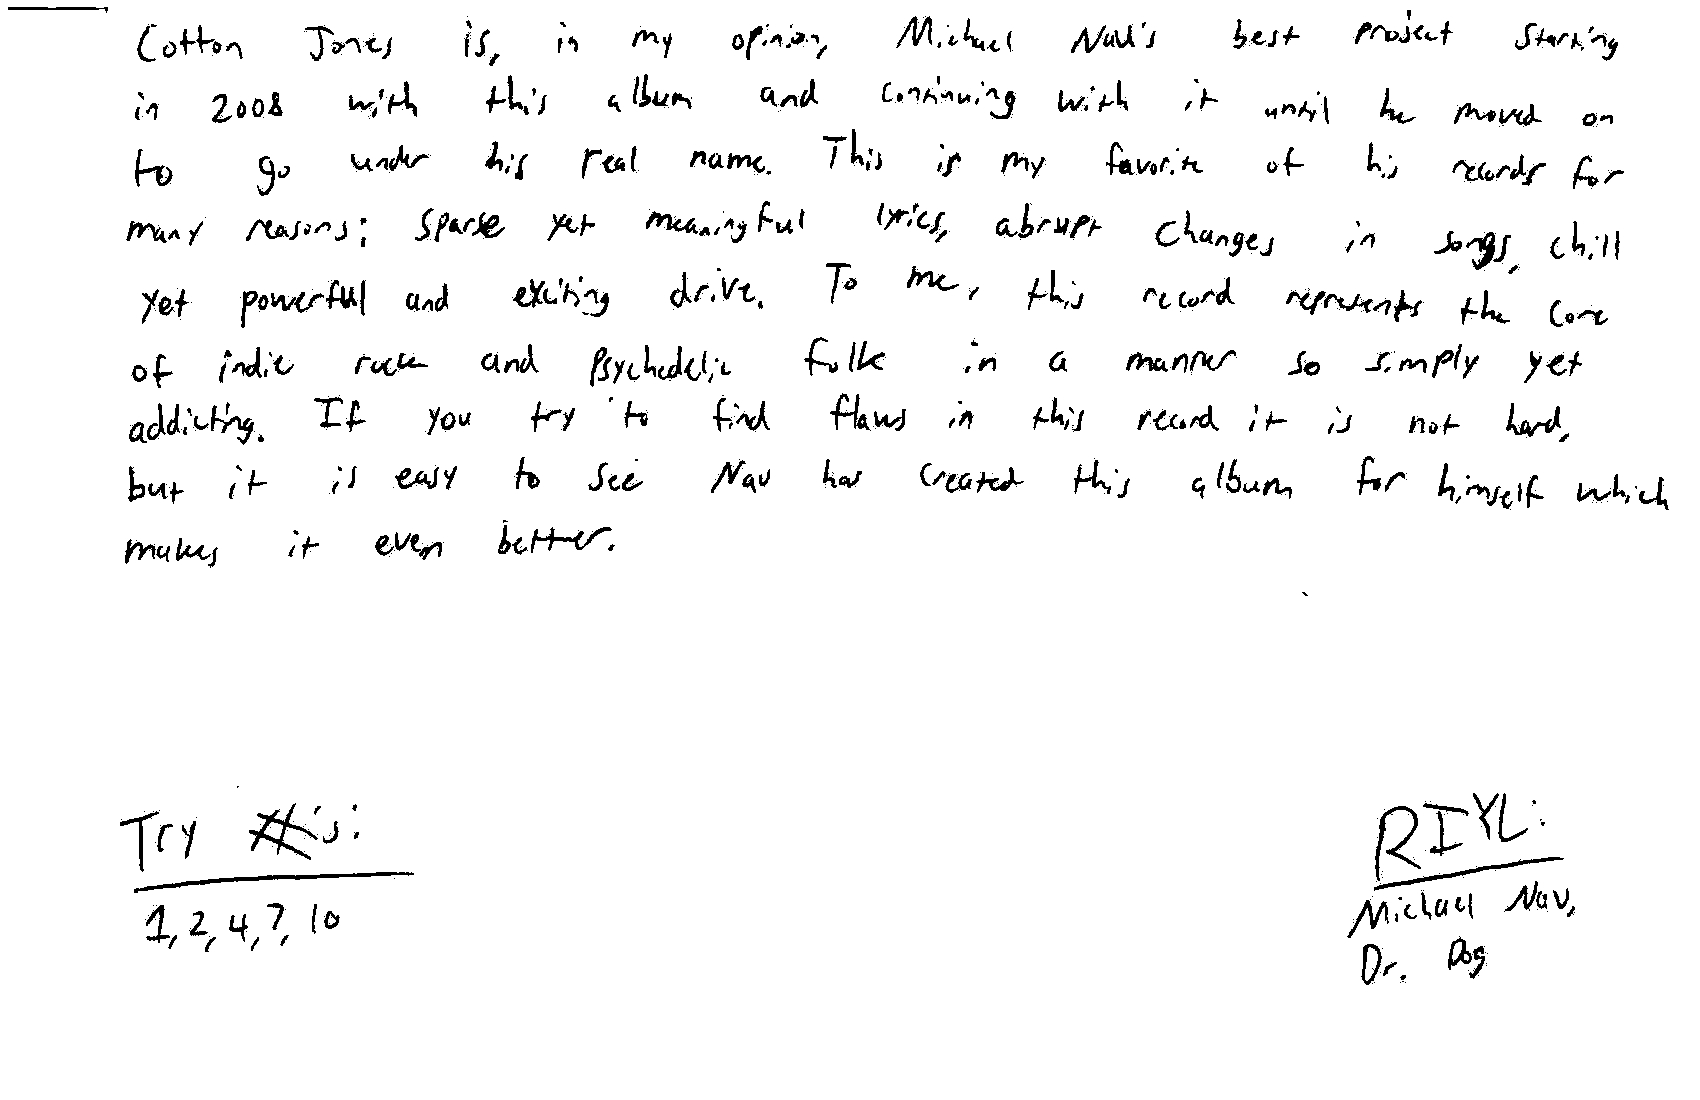 Cotton Jones is, in my opinion, Michael Nau's best project starting
in 2008 with this album and continuing with it until he moved on
to go under his real name. This is my favorite of his records for
many reasons; sparse yet meaningful lyrics, abrupt changes in songs, chill
yet powerful and exciting drive. To me, this record represents the core
of indie rock and psychedelic folk in a manner so simply yet
addicting. If you try to find flaws in this record it is not hard,
but it is easy to see Nau has created this album for himself which
makes it even better.
Try #'s:
1, 2, 4, 7, 10
RIYL:
Michael Nau,
Dr. Dog